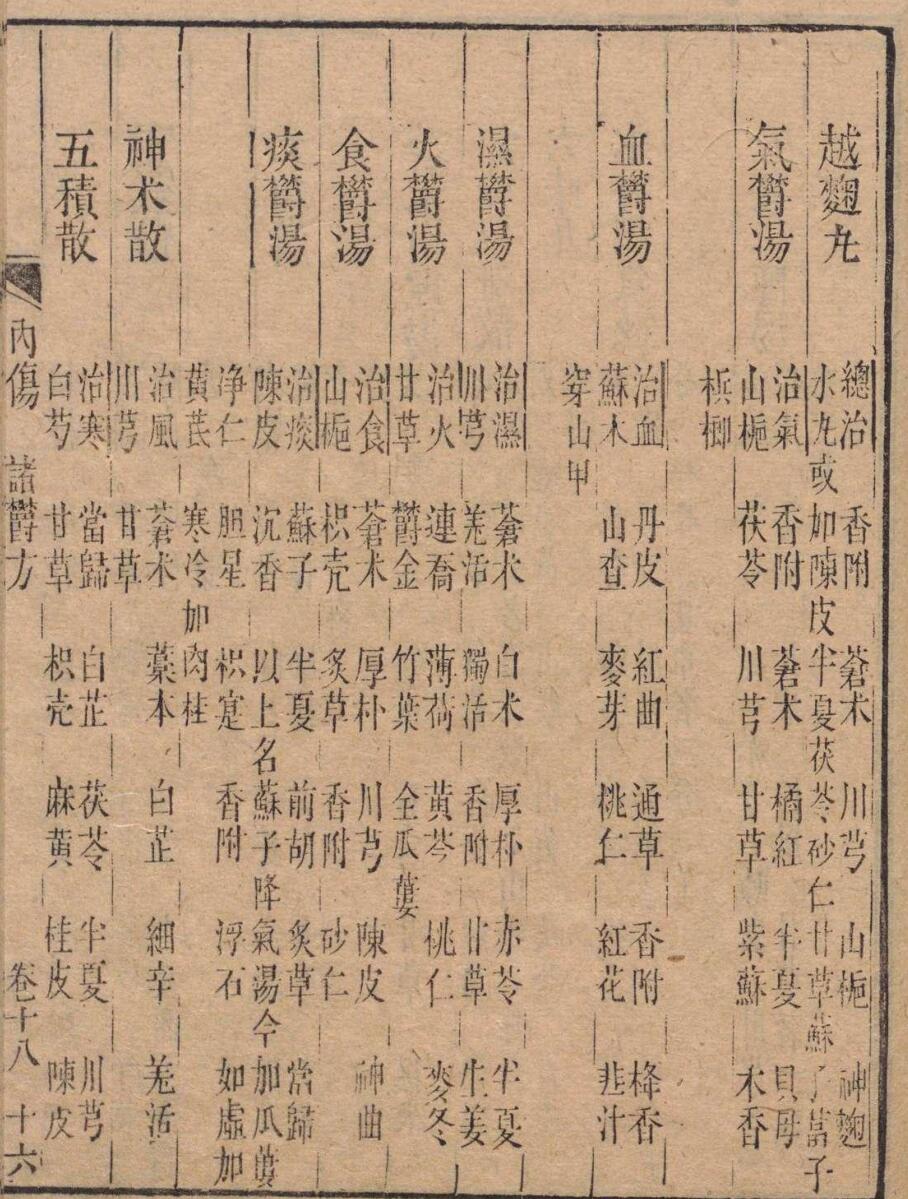 越麴丸
總治 香附 蒼术 川芎 山梔 神麴
水丸或加陳皮半夏茯苓砂仁甘草蘇子萵子
氣欝湯
治氣 香附 蒼术 橘紅 半夏 貝母
山梔 茯苓 川芎 甘草 紫蘇 木香
梹榔
血欝湯
治血 丹皮 紅曲 通草 香附 降香
蘇木 山查 麥芽 桃仁 紅花 韭汁
穿山甲
濕欝湯
治濕 蒼术 白术 厚朴 赤苓 半夏
川芎 羌活 獨活 香附 甘草 生姜
火欝湯
治火 連喬 薄荷 黃芩 桃仁 麥冬
甘草 欝金 竹葉 全瓜蔞
食欝湯
治食 蒼术 厚朴 川芎 陳皮 神曲
山梔 枳壳 炙草 香附 砂仁
痰欝湯
治痰 蘇子 半夏 前胡 炙草 當歸
陳皮 沉香 以上名蘇子降氣湯今加瓜蔞
净仁 胆星 枳寔 香附 浮石 如虛加
黃芪 寒冷加肉桂
神术散
治風 蒼术 藁本 白芷 細辛 羌活
川芎 甘草
五積散
治寒 當歸 白芷 茯苓 半夏 川芎
白芍 甘草 枳壳 麻黃 桂皮 陳皮
內傷 諸欝方 卷十八 十六